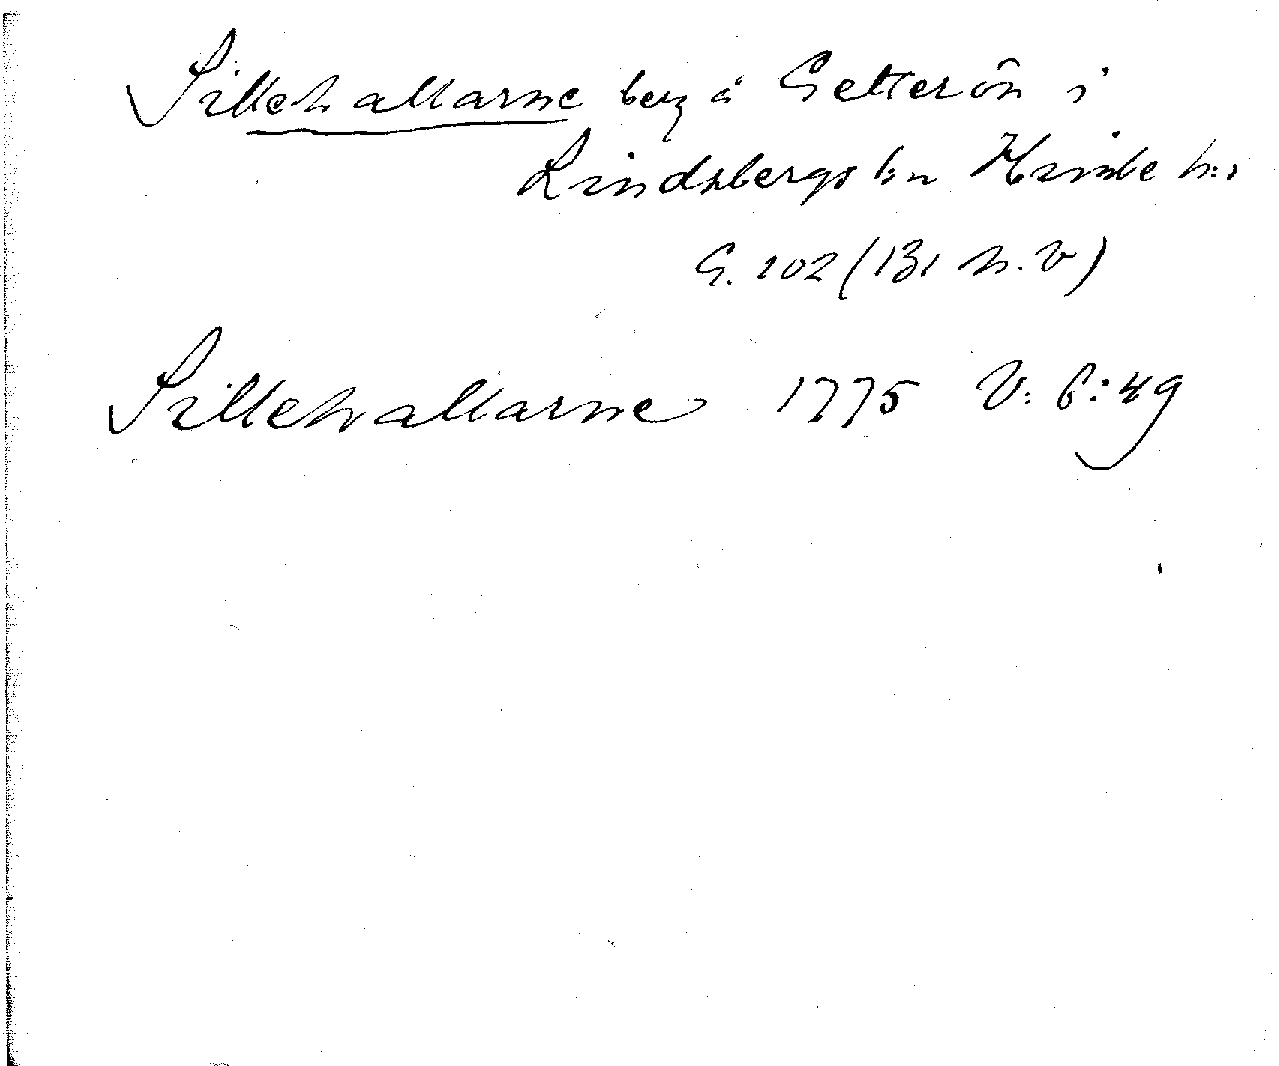 Sillehallarne berg å Getterön i
Lindsbergs s:n Himle h:d
G. 102 (131 n. v)
Sillehallarne 1775 V: 6:49